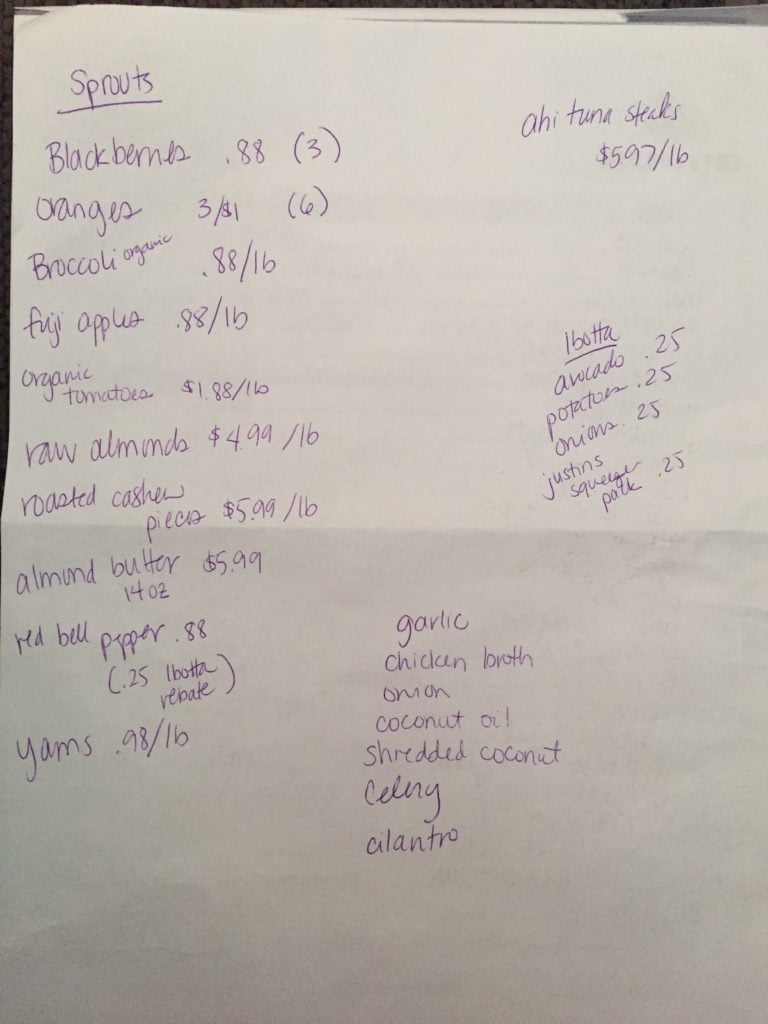 Sprouts
Blackberries .88 (3)
oranges 3/$1 (6)
Broccoli organic .88/lb
fuji apples .88/lb
organic
tomatoes $1.88/lb
raw almonds $4.99/lb
roasted cashew
pieces $5.99/lb
almond butter $5.99
14oz
red bell pepper .88
(.25 Ibotta
rebate)
yams .98/lb
ahi tuna steaks
$5.97/lb
Ibotta
avocado .25
potatoes .25
onions .25
justins
squeeze
pack .25
garlic
chicken broth
onion
coconut oil
shredded coconut
Celery
cilantro